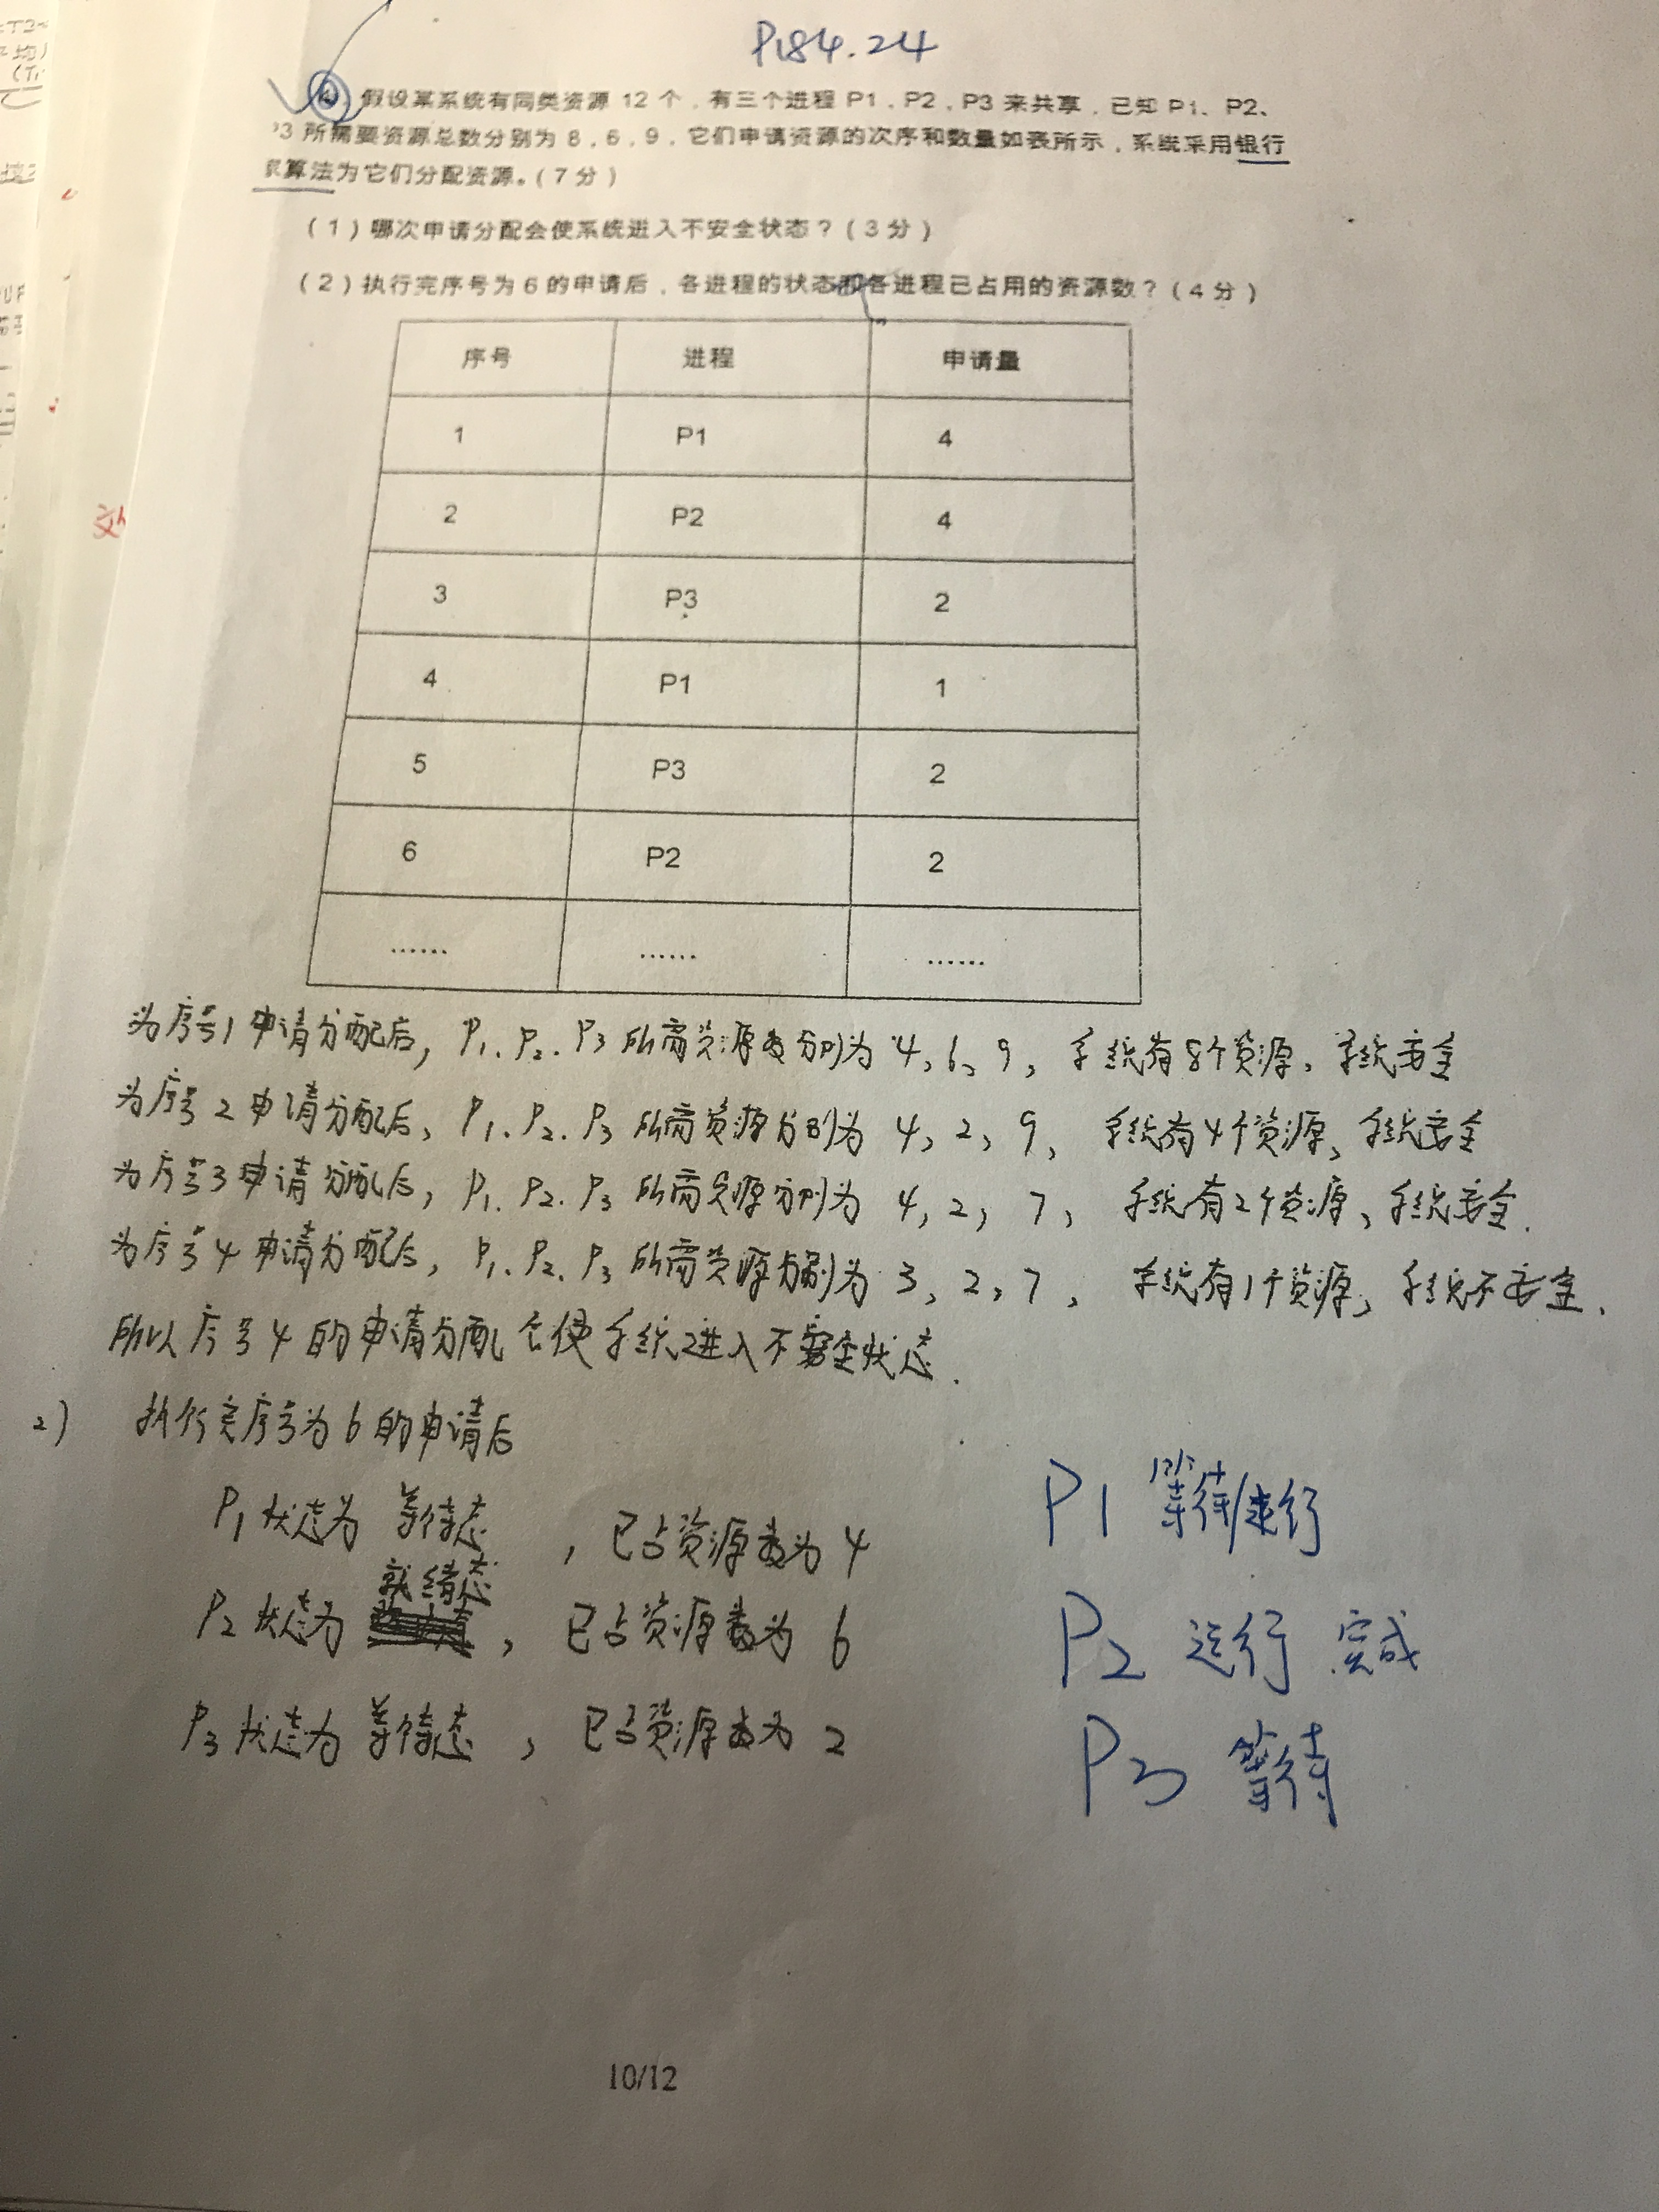 P184.24
假设某系统有同类资源 12 个，有三个进程 P1，P2，P3 来共享，已知 P1、P2、
P3 所需要资源总数分别为 8，6，9，它们申请资源的次序和数量如表所示，系统采用银行
家算法为它们分配资源。（7 分）
（1）哪次申请分配会使系统进入不安全状态？（3 分）
（2）执行完序号为 6 的申请后，各进程的状态和各进程已占用的资源数？（4 分）
序号 进程 申请量
1 P1 4
2 P2 4
3 P3 2
4 P1 1
5 P3 2
6 P2 2
…… …… ……
为序号1申请分配后，P1、P2、P3 所需资源数分别为 4，6，9，系统有8个资源，系统安全
为序号2申请分配后，P1、P2、P3 所需资源分别为 4，2，9，系统有4个资源，系统安全
为序号3申请分配后，P1、P2、P3 所需资源分别为 4，2，7，系统有2个资源，系统安全.
为序号4申请分配后，P1、P2、P3 所需资源分别为 3，2，7，系统有1个资源，系统不安全.
所以序号4的申请分配会使系统进入不安全状态.
2) 执行完序号为6的申请后
P1状态为 等待态，已占资源数为 4
P1 等待
P2状态为 就绪态，已占资源数为 6
P2 运行 完成
P3状态为 等待态，已占资源数为 2
P3 等待
10/12